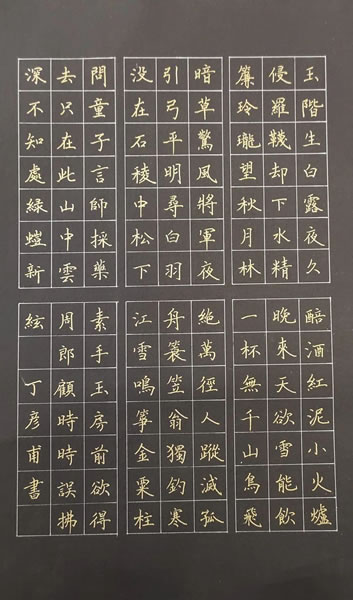 玉階生白露夜久
侵羅韈却下水精
簾玲瓏望秋月林
暗草驚風將軍夜
引弓平明尋白羽
没在石稜中松下
問童子言師採藥
去只在此山中雲
深不知處綠螘新
醅酒紅泥小火爐
晚來天欲雪能飲
一杯無千山鳥飛
絶萬徑人蹤滅孤
舟簑笠翁獨釣寒
江雪鳴箏金粟柱
素手玉房前欲得
周郎顧時時誤拂
絃 丁彥甫書